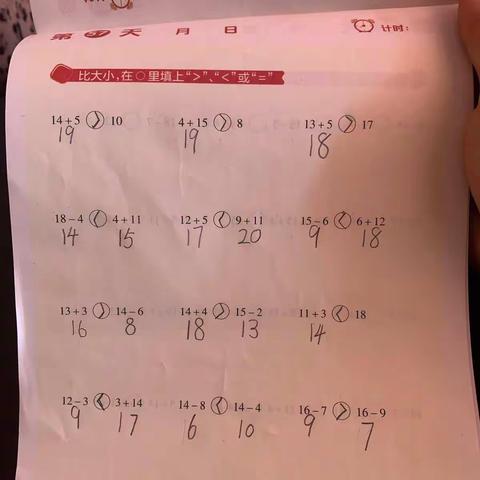 第 天 月 日 计时:
比大小,在○里填上“>”、“<”或“=”
14+5 > 10 4+15 > 8 13+5 > 17
19 19 18
18-4 < 4+11 12+5 < 9+11 15-6 < 6+12
14 15 17 20 9 18
13+3 > 14-6 14+4 > 15-2 11+3 < 18
16 8 18 13 14
12-3 < 3+14 14-8 < 14-4 16-7 > 16-9
9 17 6 10 9 7